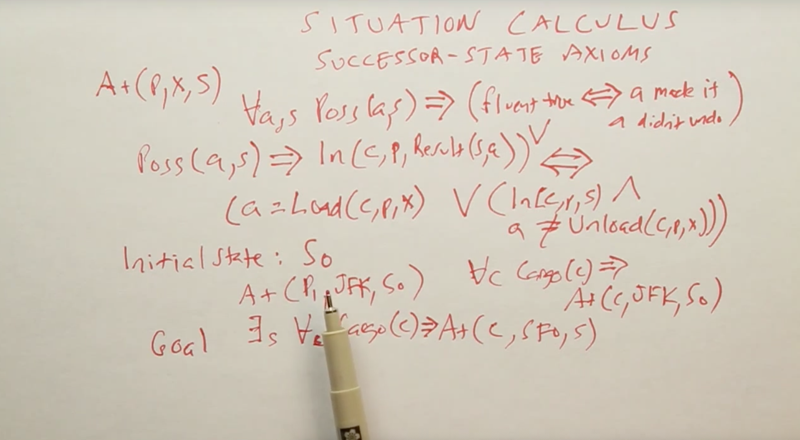 SITUATION CALCULUS
SUCCESSOR-STATE AXIOMS
At(P,X,S)
∀a,s Poss(a,s) ⇒ (fluent true ⇔ a made it
∨ a didn't undo)
Poss(a,s) ⇒ In(c,p,Result(s,a)) ⇔
(a = Load(c,p,x) ∨ (In(c,p,s) ∧
a ≠ Unload(c,p,x)))
Initial state: S0
At(P1,JFK,S0) ∀c Cargo(c) ⇒
At(C,JFK,S0)
Goal ∃s ∀c Cargo(c) ⇒ At(c,SFO,s)